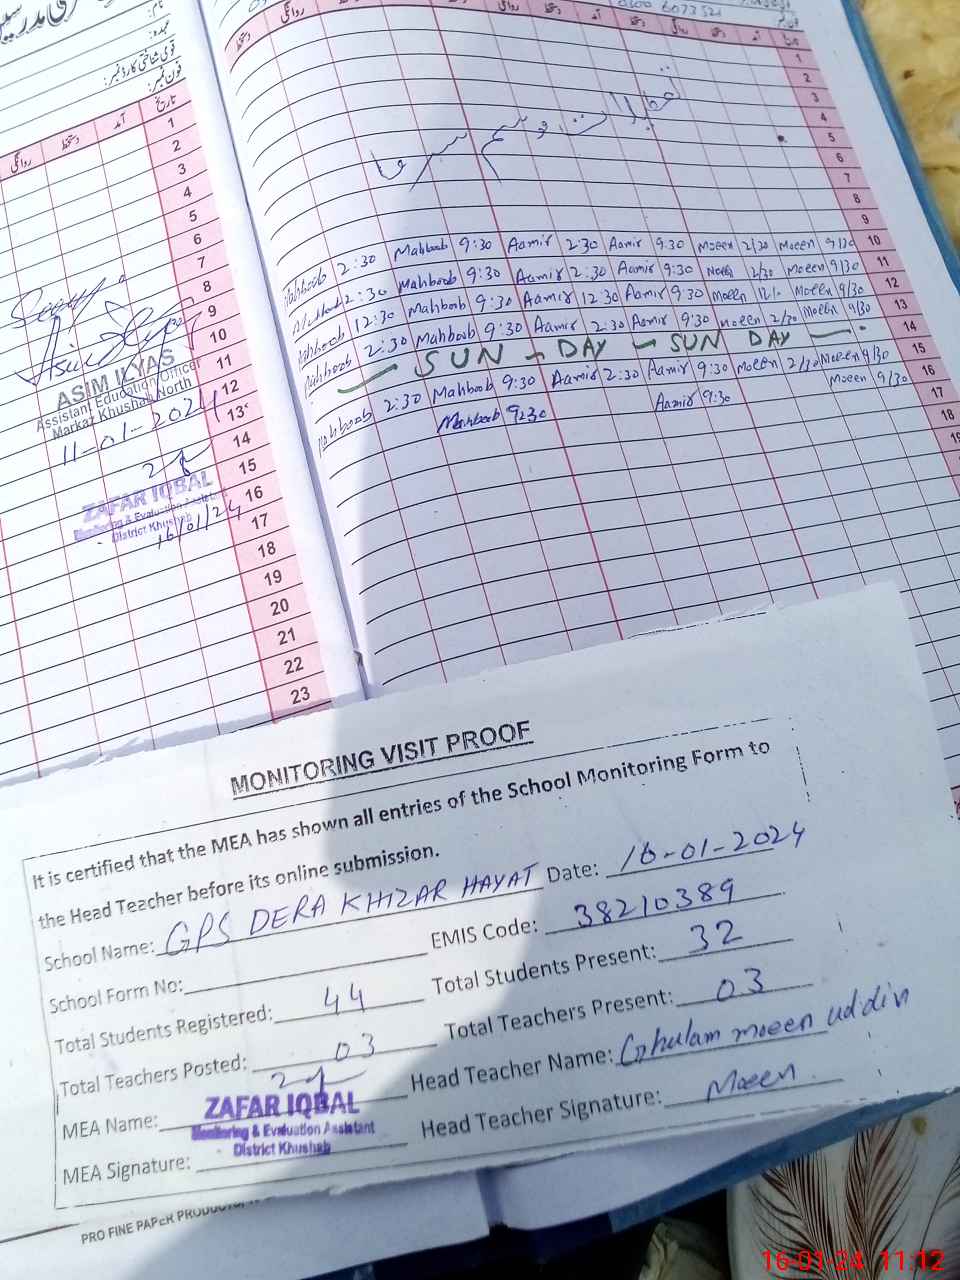 نام:
عہدہ:
قومی شناختی کارڈ نمبر:
فون نمبر:
تاریخ آمد دستخط روانگی
1
2
3
4
5
6
7
8
9
10
11
12
13
14
15
16
17
18
19
20
21
22
23
ASIM ILYAS
Assistant Education Officer
Markaz Khushab North
11-01-2024
ZAFAR IQBAL
Monitoring & Evaluation Assistant
District Khushab
16/01/24
0300 6073521
تاریخ آمد دستخط روانگی دستخط آمد دستخط روانگی دستخط
1
2
3
4
تعطیلات موسم سرما
5
6
7
8
9
Mahboob 2:30 Mahboob 9:30 Aamir 2:30 Aamir 9:30 Moeen 2/30 Moeen 9/30 10
2:30 Mahboob 9:30 Aamir 2:30 Aamir 9:30 Moeen 2/30 Moeen 9/30 11
Mahboob 12:30 Mahboob 9:30 Aamir 12:30 Aamir 9:30 Moeen 12/- Moeen 9/30 12
Mahboob 2:30 Mahboob 9:30 Aamir 2:30 Aamir 9:30 Moeen 2/30 Moeen 9/30 13
— SUN — DAY — SUN DAY — 14
Mahboob 2:30 Mahboob 9:30 Aamir 2:30 Aamir 9:30 Moeen 2/30 Moeen 9/30 15
Mahboob 9:30 Aamir 9:30 Moeen 9/30 16
17
18
19
MONITORING VISIT PROOF
It is certified that the MEA has shown all entries of the School Monitoring Form to
the Head Teacher before its online submission.
School Name: GPS DERA KHIZAR HAYAT Date: 16-01-2024
School Form No: EMIS Code: 38210389
Total Students Registered: 44 Total Students Present: 32
Total Teachers Posted: 03 Total Teachers Present: 03
MEA Name: Head Teacher Name: Ghulam moeen uddin
ZAFAR IQBAL
Monitoring & Evaluation Assistant
District Khushab
MEA Signature: Head Teacher Signature: Moeen
PRO FINE PAPER PRODUCTS,
16-01-24 11:12